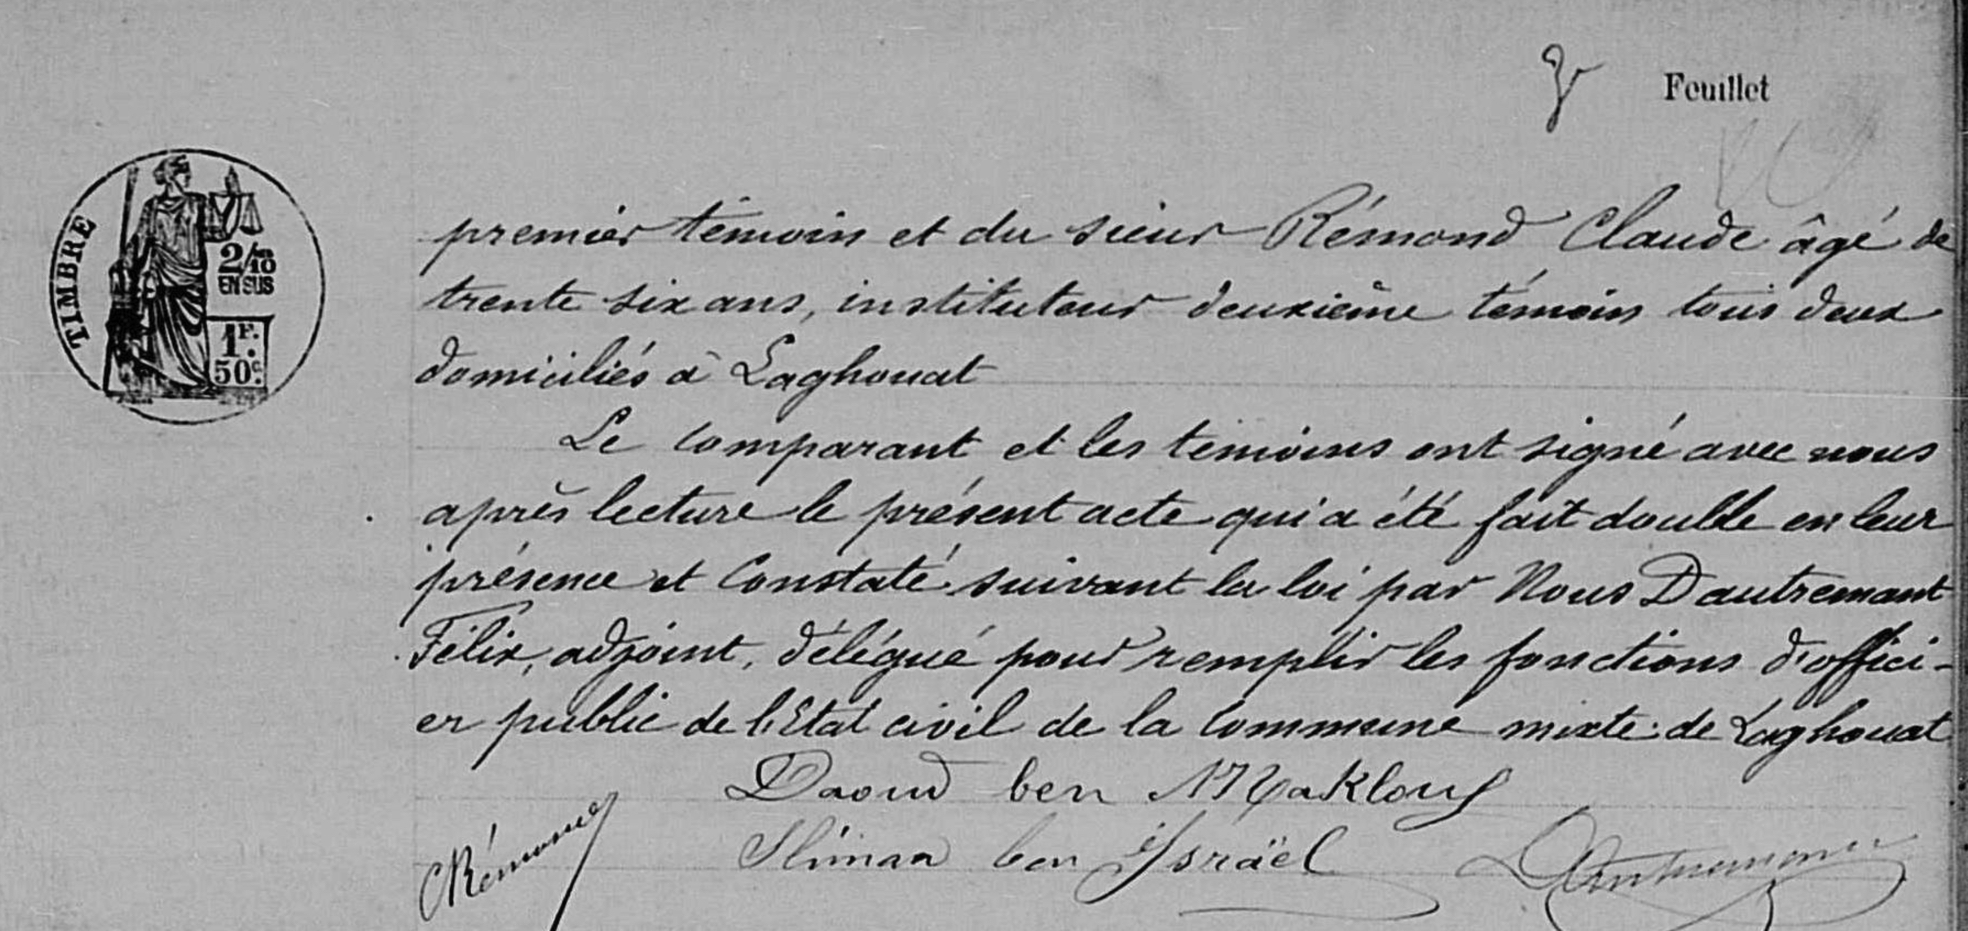 3e Feuillet
TIMBRE
2/10
EN SUS
1F.
50c.
premier témoin et du sieur Rémond Claude âgé de
trente six ans, instituteur deuxième témoin tous deux
domiciliés à Laghouat
Le comparant et les témoins ont signé avec nous
après lecture le présent acte qui a été fait double en leur
présence et Constaté suivant la loi par Nous Dautremant
Félix, adjoint, délégué pour remplir les fonctions d'offici-
er public de l'Etat civil de la Commune mixte de Laghouat
Daoud ben Maklouf
CRémond Sliman ben israël Dautremant